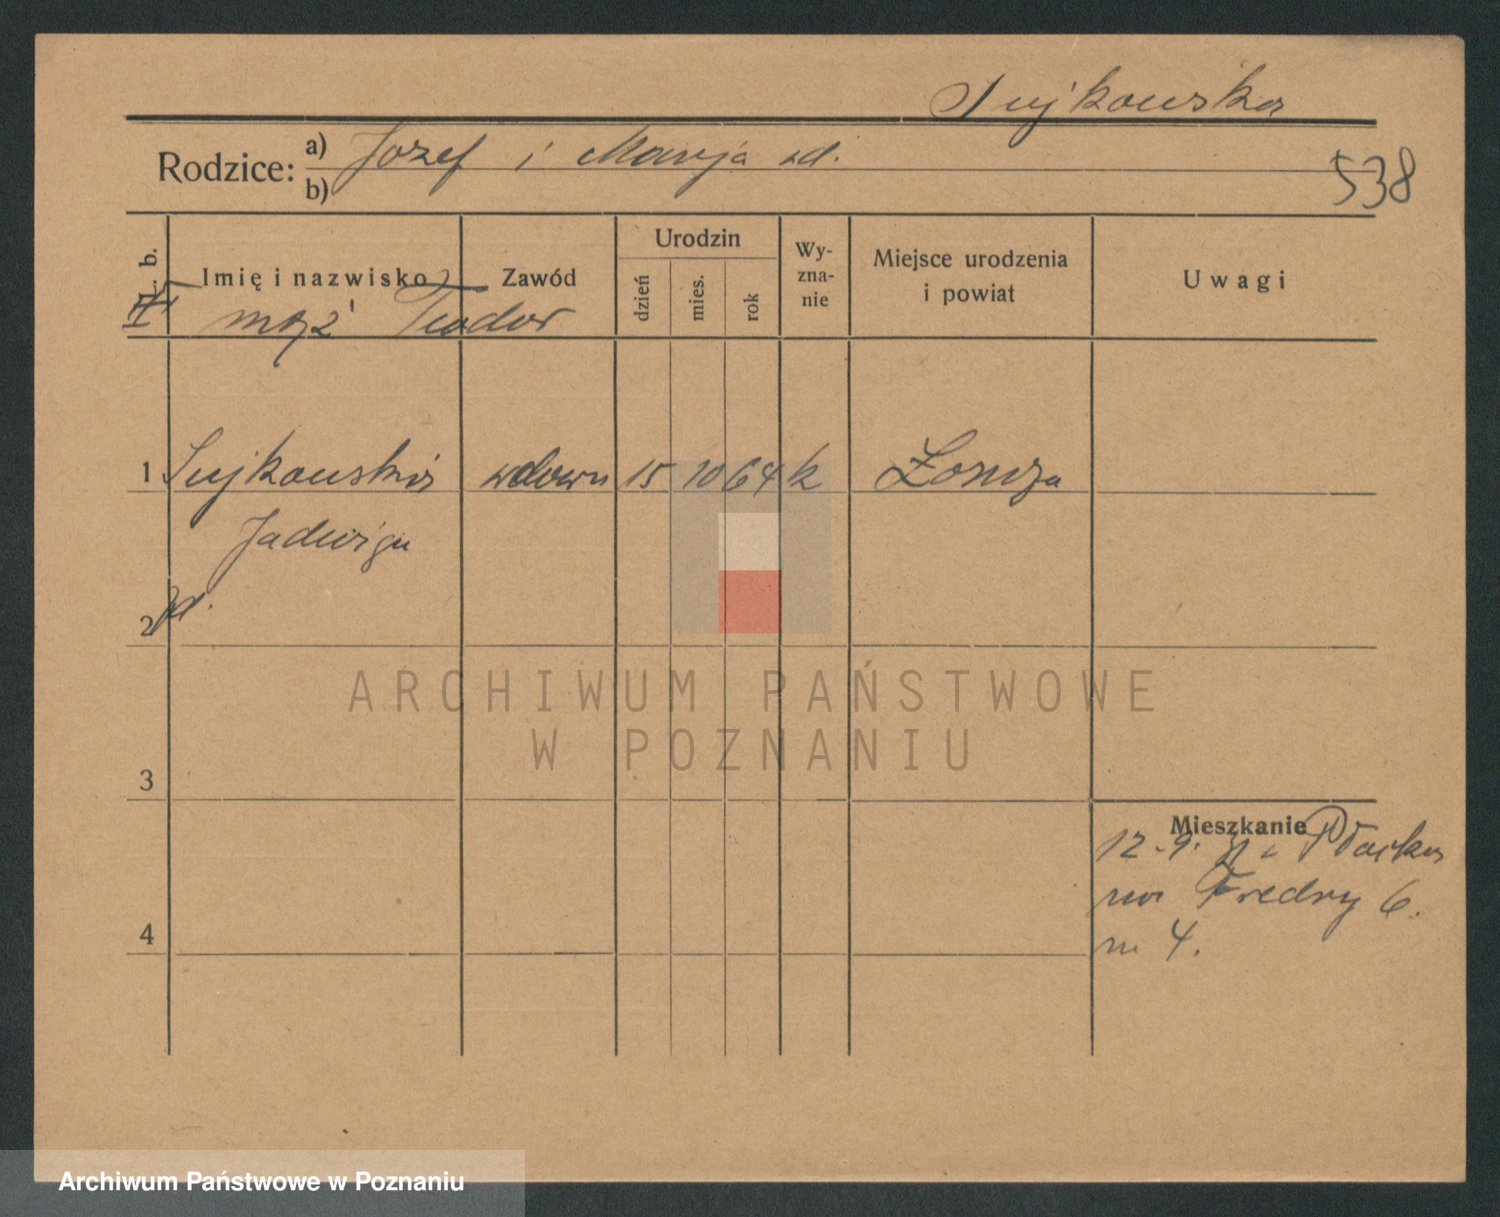 Sujkowska
Rodzice: a) Józef i Marja zd.
b)
538
L. b. Imię i nazwisko Zawód Urodzin dzień mies. rok Wy-zna-nie Miejsce urodzenia i powiat Uwagi
mąż Teodor
1 Sujkowska wdowa 15 10 64 k Łomża
Jadwiga
2 zd.
3
Mieszkanie
12.9. Płocka
na Fredry 6.
4 m 4.
ARCHIWUM PAŃSTWOWE
W POZNANIU
Archiwum Państwowe w Poznaniu